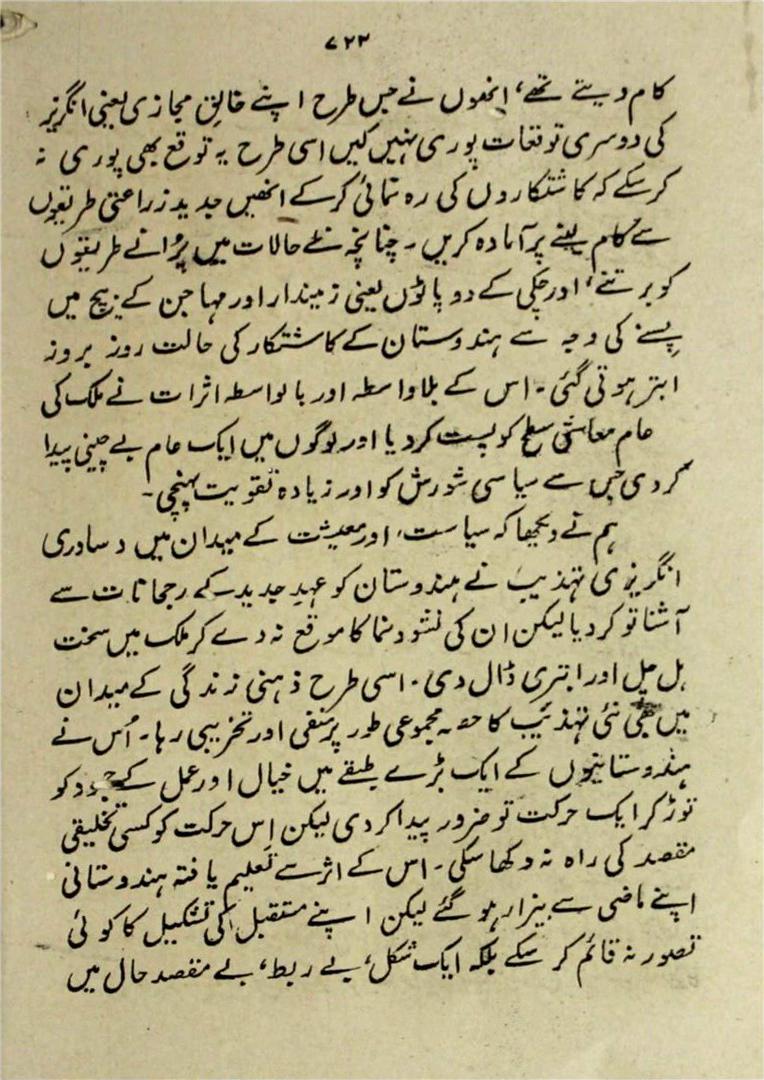 ۷۲۲
کام دیتے تھے، انھوں نے جس طرح اپنے خالقِ مجازی یعنی انگریز
کی دوسری توقعات پوری نہیں کیں اسی طرح یہ توقع بھی پوری نہ
کر سکے کہ کاشتکاروں کی رہ نمائی کر کے انھیں جدید زراعتی طریقوں
سے کام لینے پر آمادہ کریں۔ چنانچہ نئے حالات میں پُرانے طریقوں
کو برتنے، اور چکی کے دو پاٹوں یعنی زمیندار اور مہاجن کے بیچ میں
پسنے کی وجہ سے ہندوستان کے کاشتکار کی حالت روز بروز
ابتر ہوتی گئی۔ اس کے بلاواسطہ اور بالواسطہ اثرات نے ملک کی
عام معاشی سطح کو پست کر دیا اور لوگوں میں ایک عام بے چینی پیدا
کر دی جس سے سیاسی شورش کو اور زیادہ تقویت پہنچی۔
ہم نے دیکھا کہ سیاست، اور معیشت کے میدان میں دساوری
انگریزی تہذیب نے ہندوستان کو عہدِ جدید کے رجحانات سے
آشنا تو کر دیا لیکن ان کی نشوونما کا موقع نہ دے کر ملک میں سخت
ہل چل اور ابتری ڈال دی۔ اسی طرح ذہنی زندگی کے میدان
میں بھی نئی تہذیب کا حصہ مجموعی طور پر منفی اور تخریبی رہا۔ اُس نے
ہندوستانیوں کے ایک بڑے طبقے میں خیال اور عمل کے جمود کو
توڑ کر ایک حرکت تو ضرور پیدا کر دی لیکن اِس حرکت کو کسی تخلیقی
مقصد کی راہ نہ دکھا سکی۔ اس کے اثر سے تعلیم یافتہ ہندوستانی
اپنے ماضی سے بیزار ہو گئے لیکن اپنے مستقبل کی تشکیل کا کوئی
تصور نہ قائم کر سکے بلکہ ایک شکل، بے ربط، بے مقصد حال میں